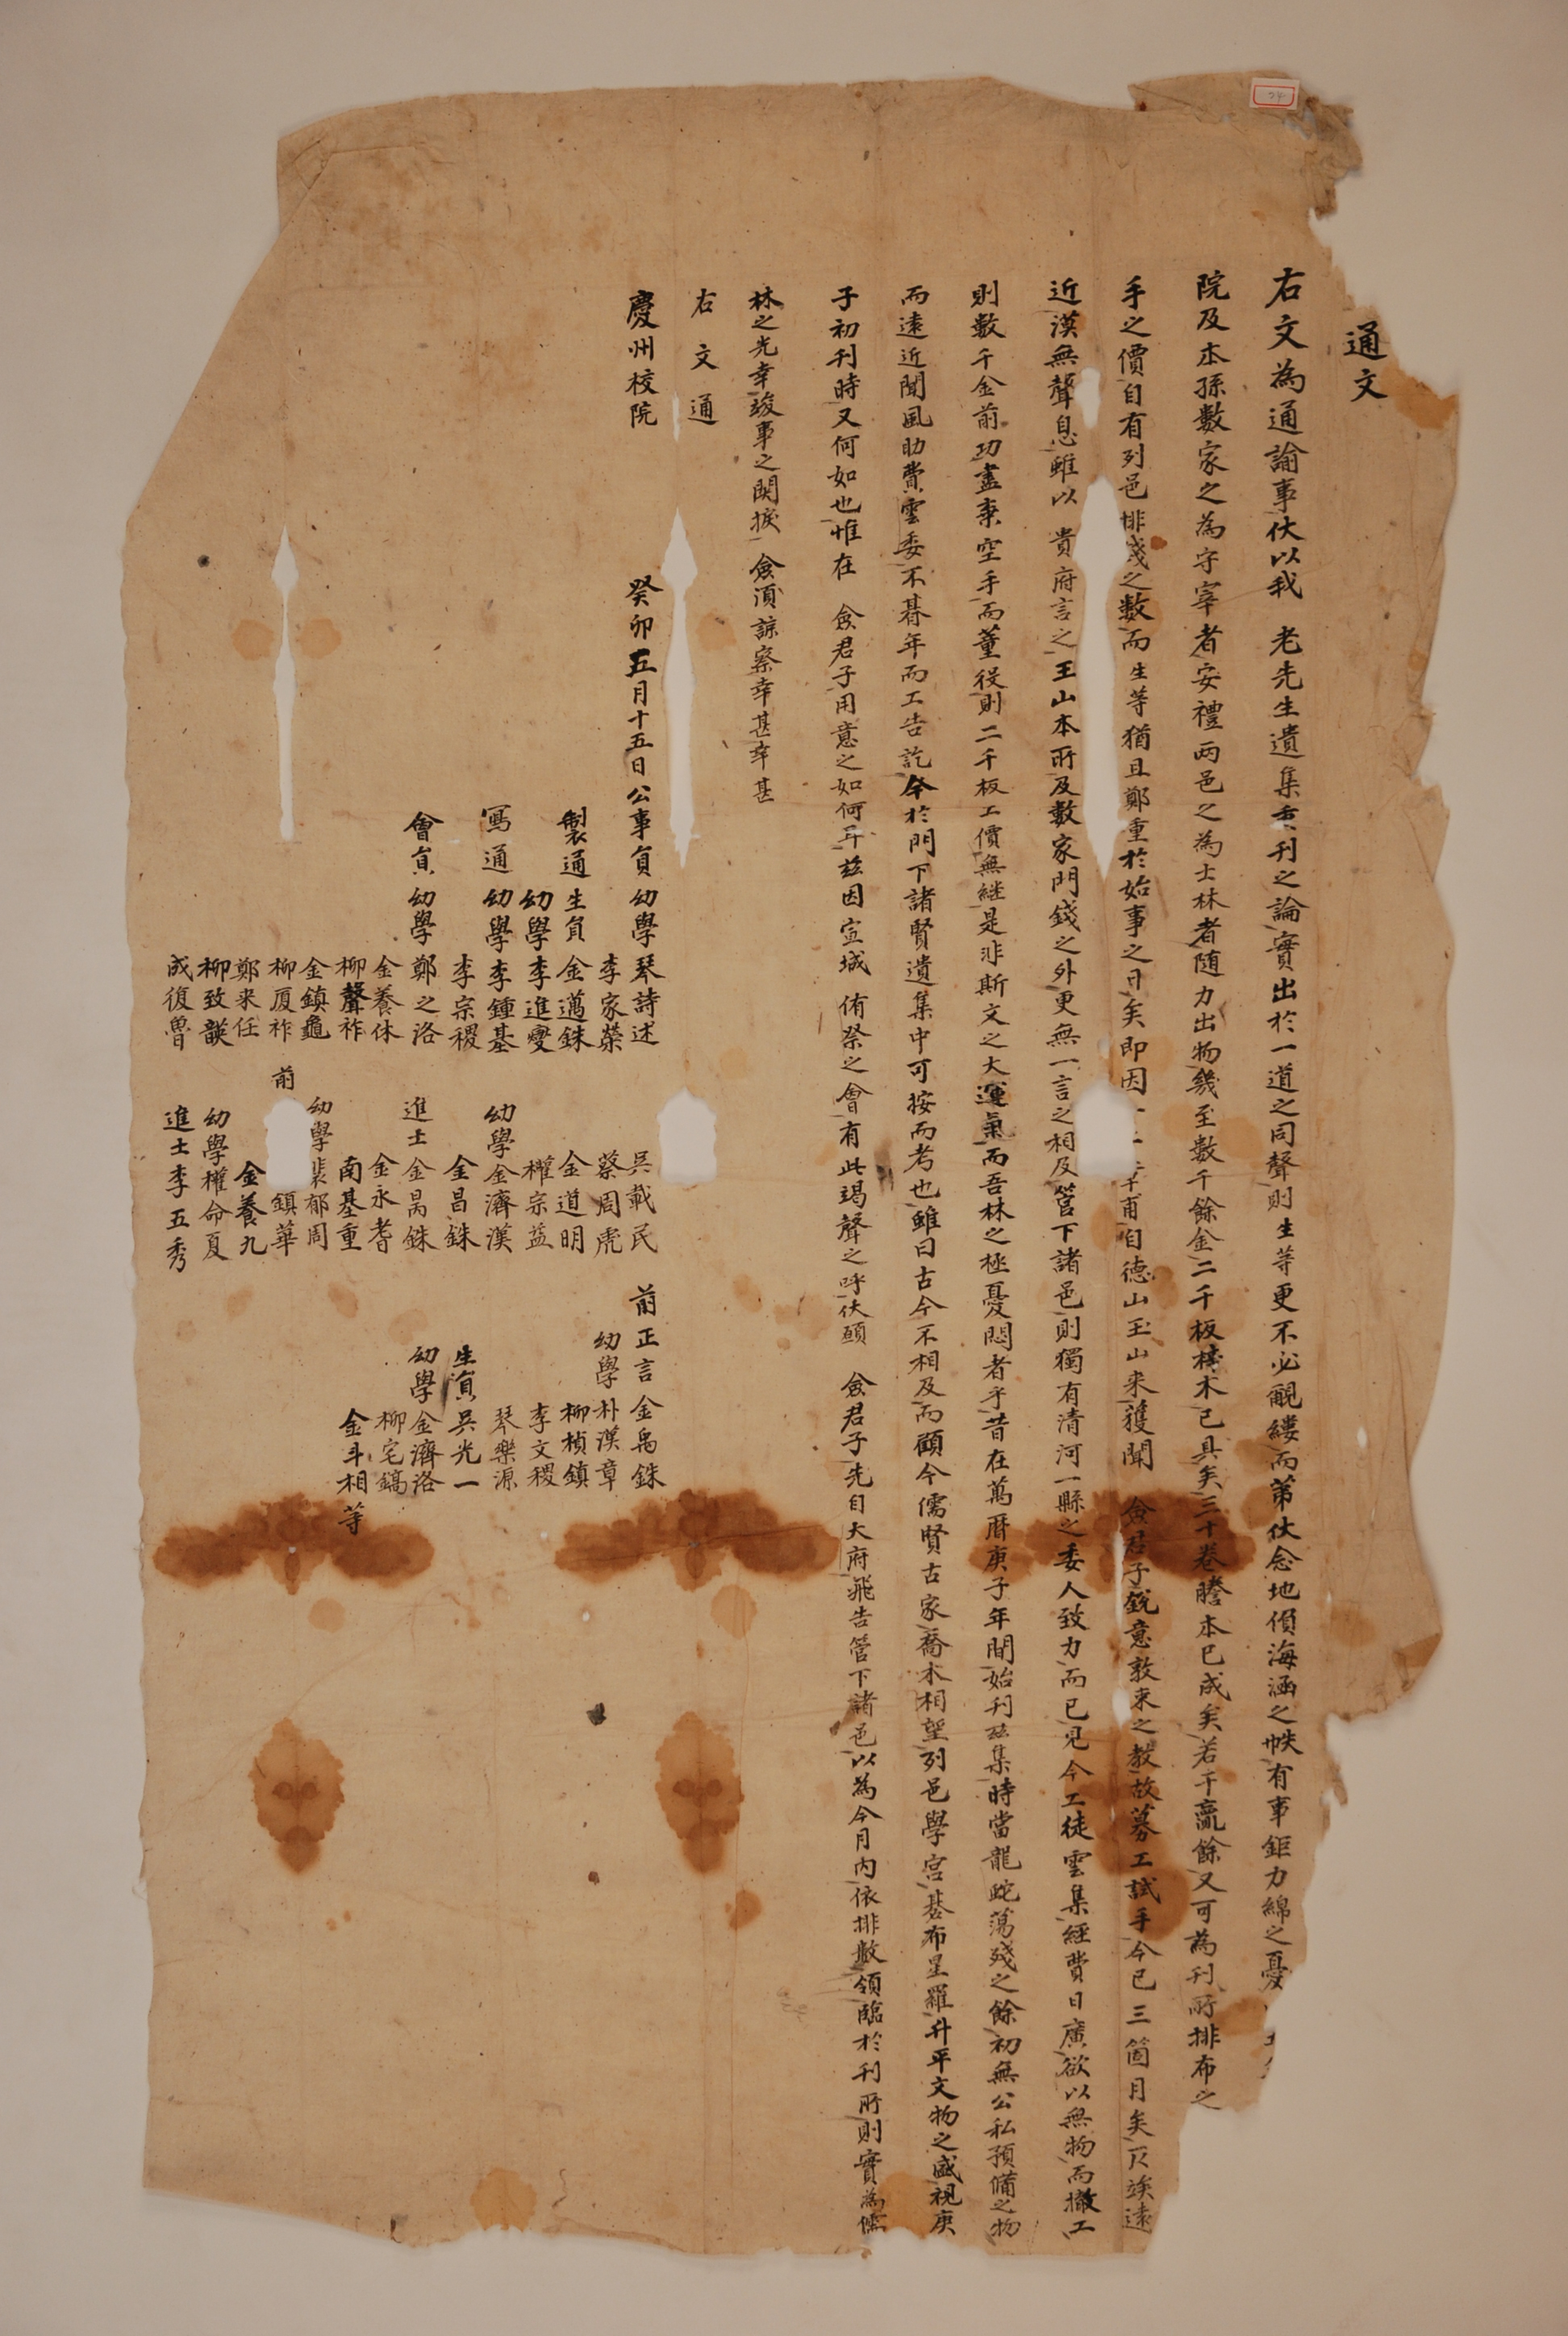 通文
右文為通諭事伏以我 老先生遺集重刊之論實出於一道之同聲則生等更不必覼縷而第伏念地傾海涵之帙有事鉅力綿之憂
院及本孫數家之為守宰者安禮兩邑之為士林者随力出物幾至數千餘金二千板梓木已具矣三十卷謄本已成矣若干贏餘又可為刊所排布之
手之價自有列邑排戔之數而生等猶且鄭重於始事之日矣即因 自德山玉山来獲聞 僉君子銳意敦束之教故募工試手今已三箇月矣 竢遠
近漠無聲息雖以 貴府言之玉山本所及數家門錢之外更無一言之相及管下諸邑則獨有清河一縣之委人致力而已見今工徒雲集經費日廣欲以無物而撤工
則數千金前功盡棄空手而董役則二千板工價無継是非斯文之大運氣而吾林之極憂悶者乎昔在萬曆庚子年間始刊玆集時當龍蛇蕩殘之餘初無公私預備之物
而遠近聞風助費雲委不朞年而工告訖今於門下諸賢遺集中可按而考也雖曰古今不相及而顧今儒賢古家喬木相望列邑學宮碁布星羅升平文物之盛視庚
子初刊時又何如也惟在 僉君子用意之如何耳玆因宣城 侑祭之會有此竭聲之呼伏願 僉君子先自大府飛告管下諸邑以為今月内依排數領臨於刊所則實為儒
林之光幸竣事之関捩 僉須諒察幸甚幸甚
右文通
慶州校院
癸卯五月十五日公事員幼學琴詩述 吳載民 前正言金禹銖
李家榮 蔡周虎 幼學朴漢章
製通生員金邁銖 金道明 柳楨鎮
幼學李進燮 權宗益 李文稷
寫通幼學李鍾基 幼學金濟漢 琴樂源
李宗稷 金昌銖 生員吳光一
會員幼學鄭之洛 進士金禺銖 幼學金濟洛
金養休 金永耆 柳宅鎬
柳聲祚 南基重 金斗相等
金鎮龜 幼學裴郁周
柳厦祚 前 鎮華
鄭来任 金養九
柳致 幼學權命夏
成復魯 進士李五秀